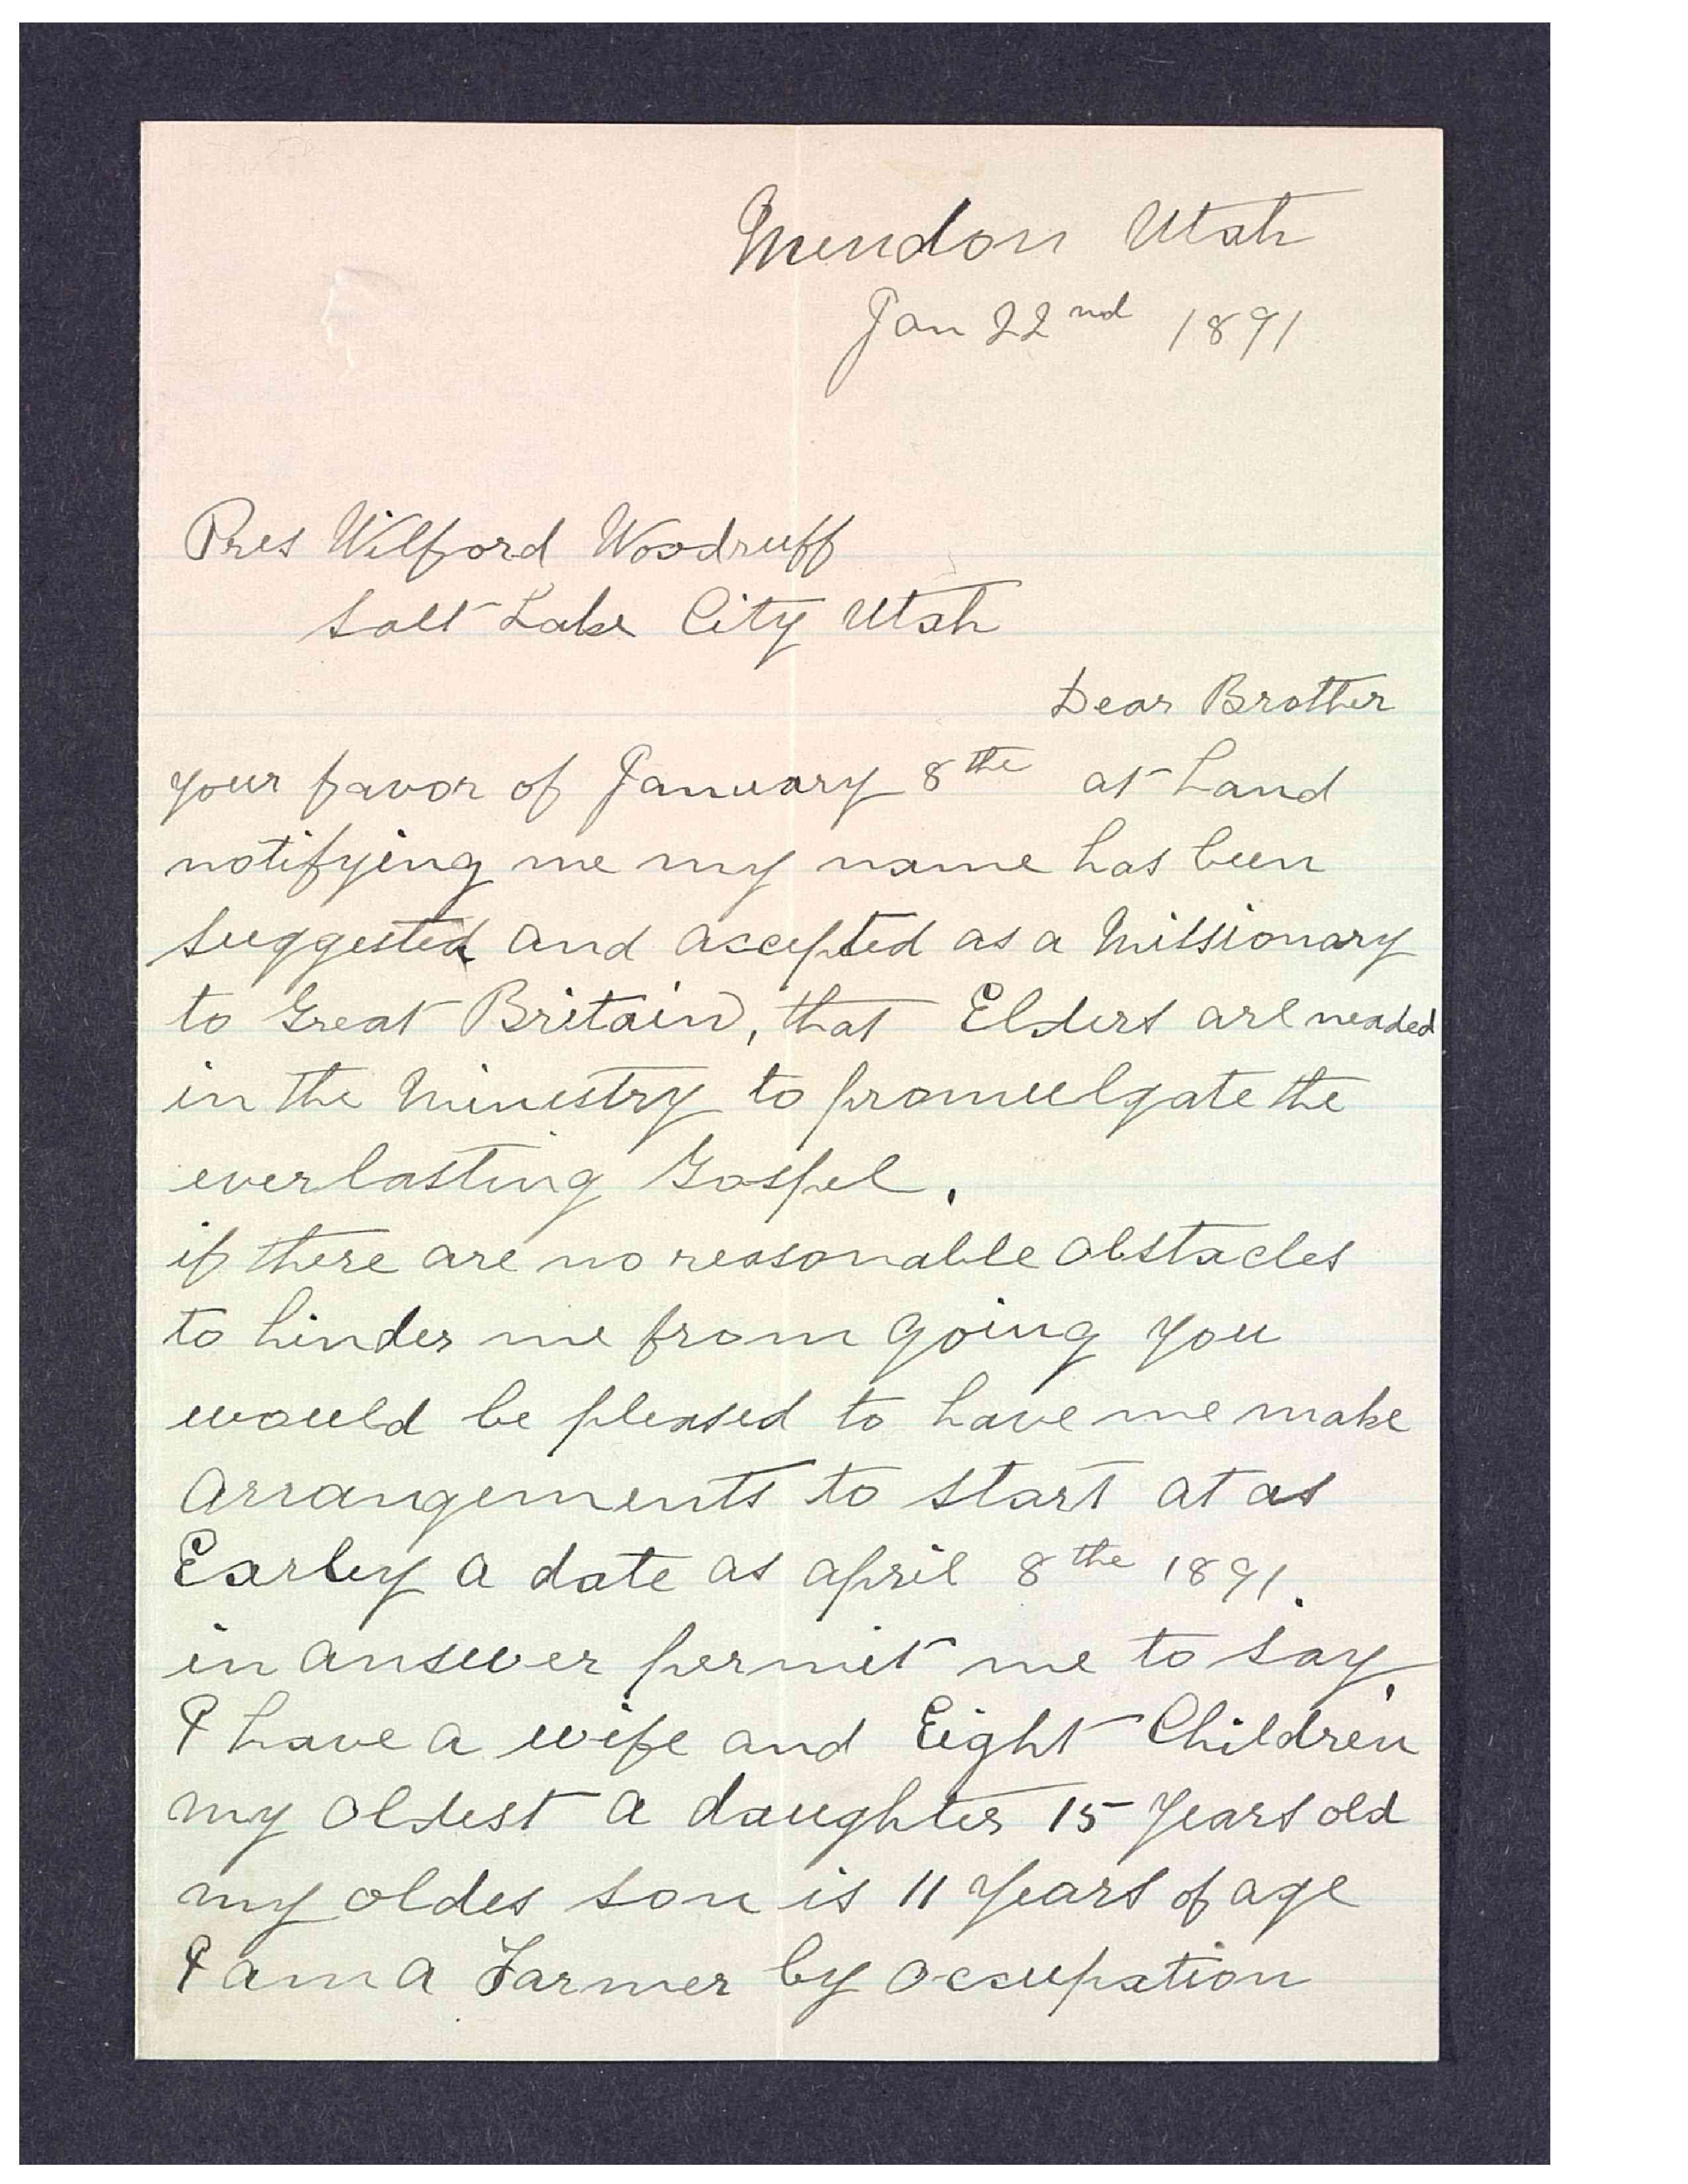 Mendon Utah
Jan 22nd 1891
Pres Wilford Woodruff
Salt Lake City Utah
Dear Brother
your favor of January 8th at hand
notifying me my name has been
suggested and accepted as a Missionary
to Great Britain, that Elders are neaded
in the Ministry to promulgate the
everlasting Gospel.
if there are no reasonable obstacles
to hinder me from going you
would be pleased to have me make
arrangements to start at as
Earley a date as april 8th 1891.
in answer permit me to say,
I have a wife and Eight Children
my oldest a daughter 15 years old
my oldes son is 11 years of age
I am a Farmer by occupation